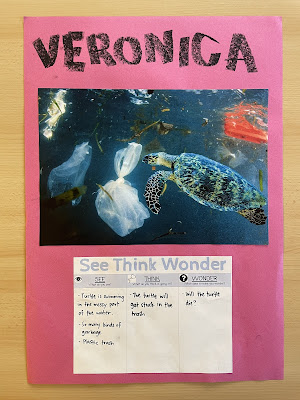 VERONICA
See Think Wonder
SEE
THINK
? WONDER
- Turtle is swimming
in the messy part
of the water.
- So many kinds of
garbage
- Plastic trash
- The turtle will
get stuck in the
trash
- Will the turtle
die?